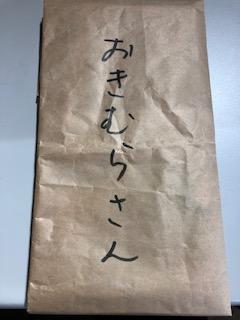 おきむらさん